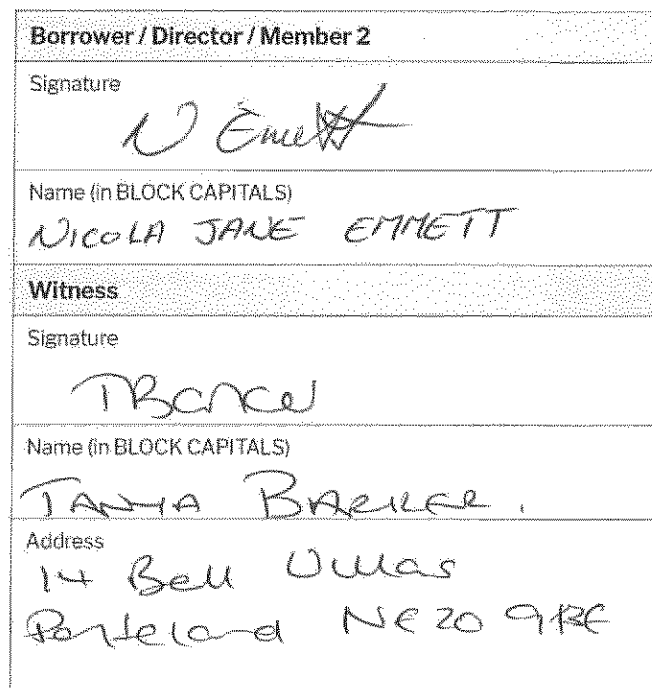 Borrower / Director / Member 2
Signature
N Emmett
Name (in BLOCK CAPITALS)
NICOLA JANE EMMETT
Witness
Signature
TBarker
Name (in BLOCK CAPITALS)
TANYA BARKER.
Address
14 Bell Villas
Ponteland NE20 9BE